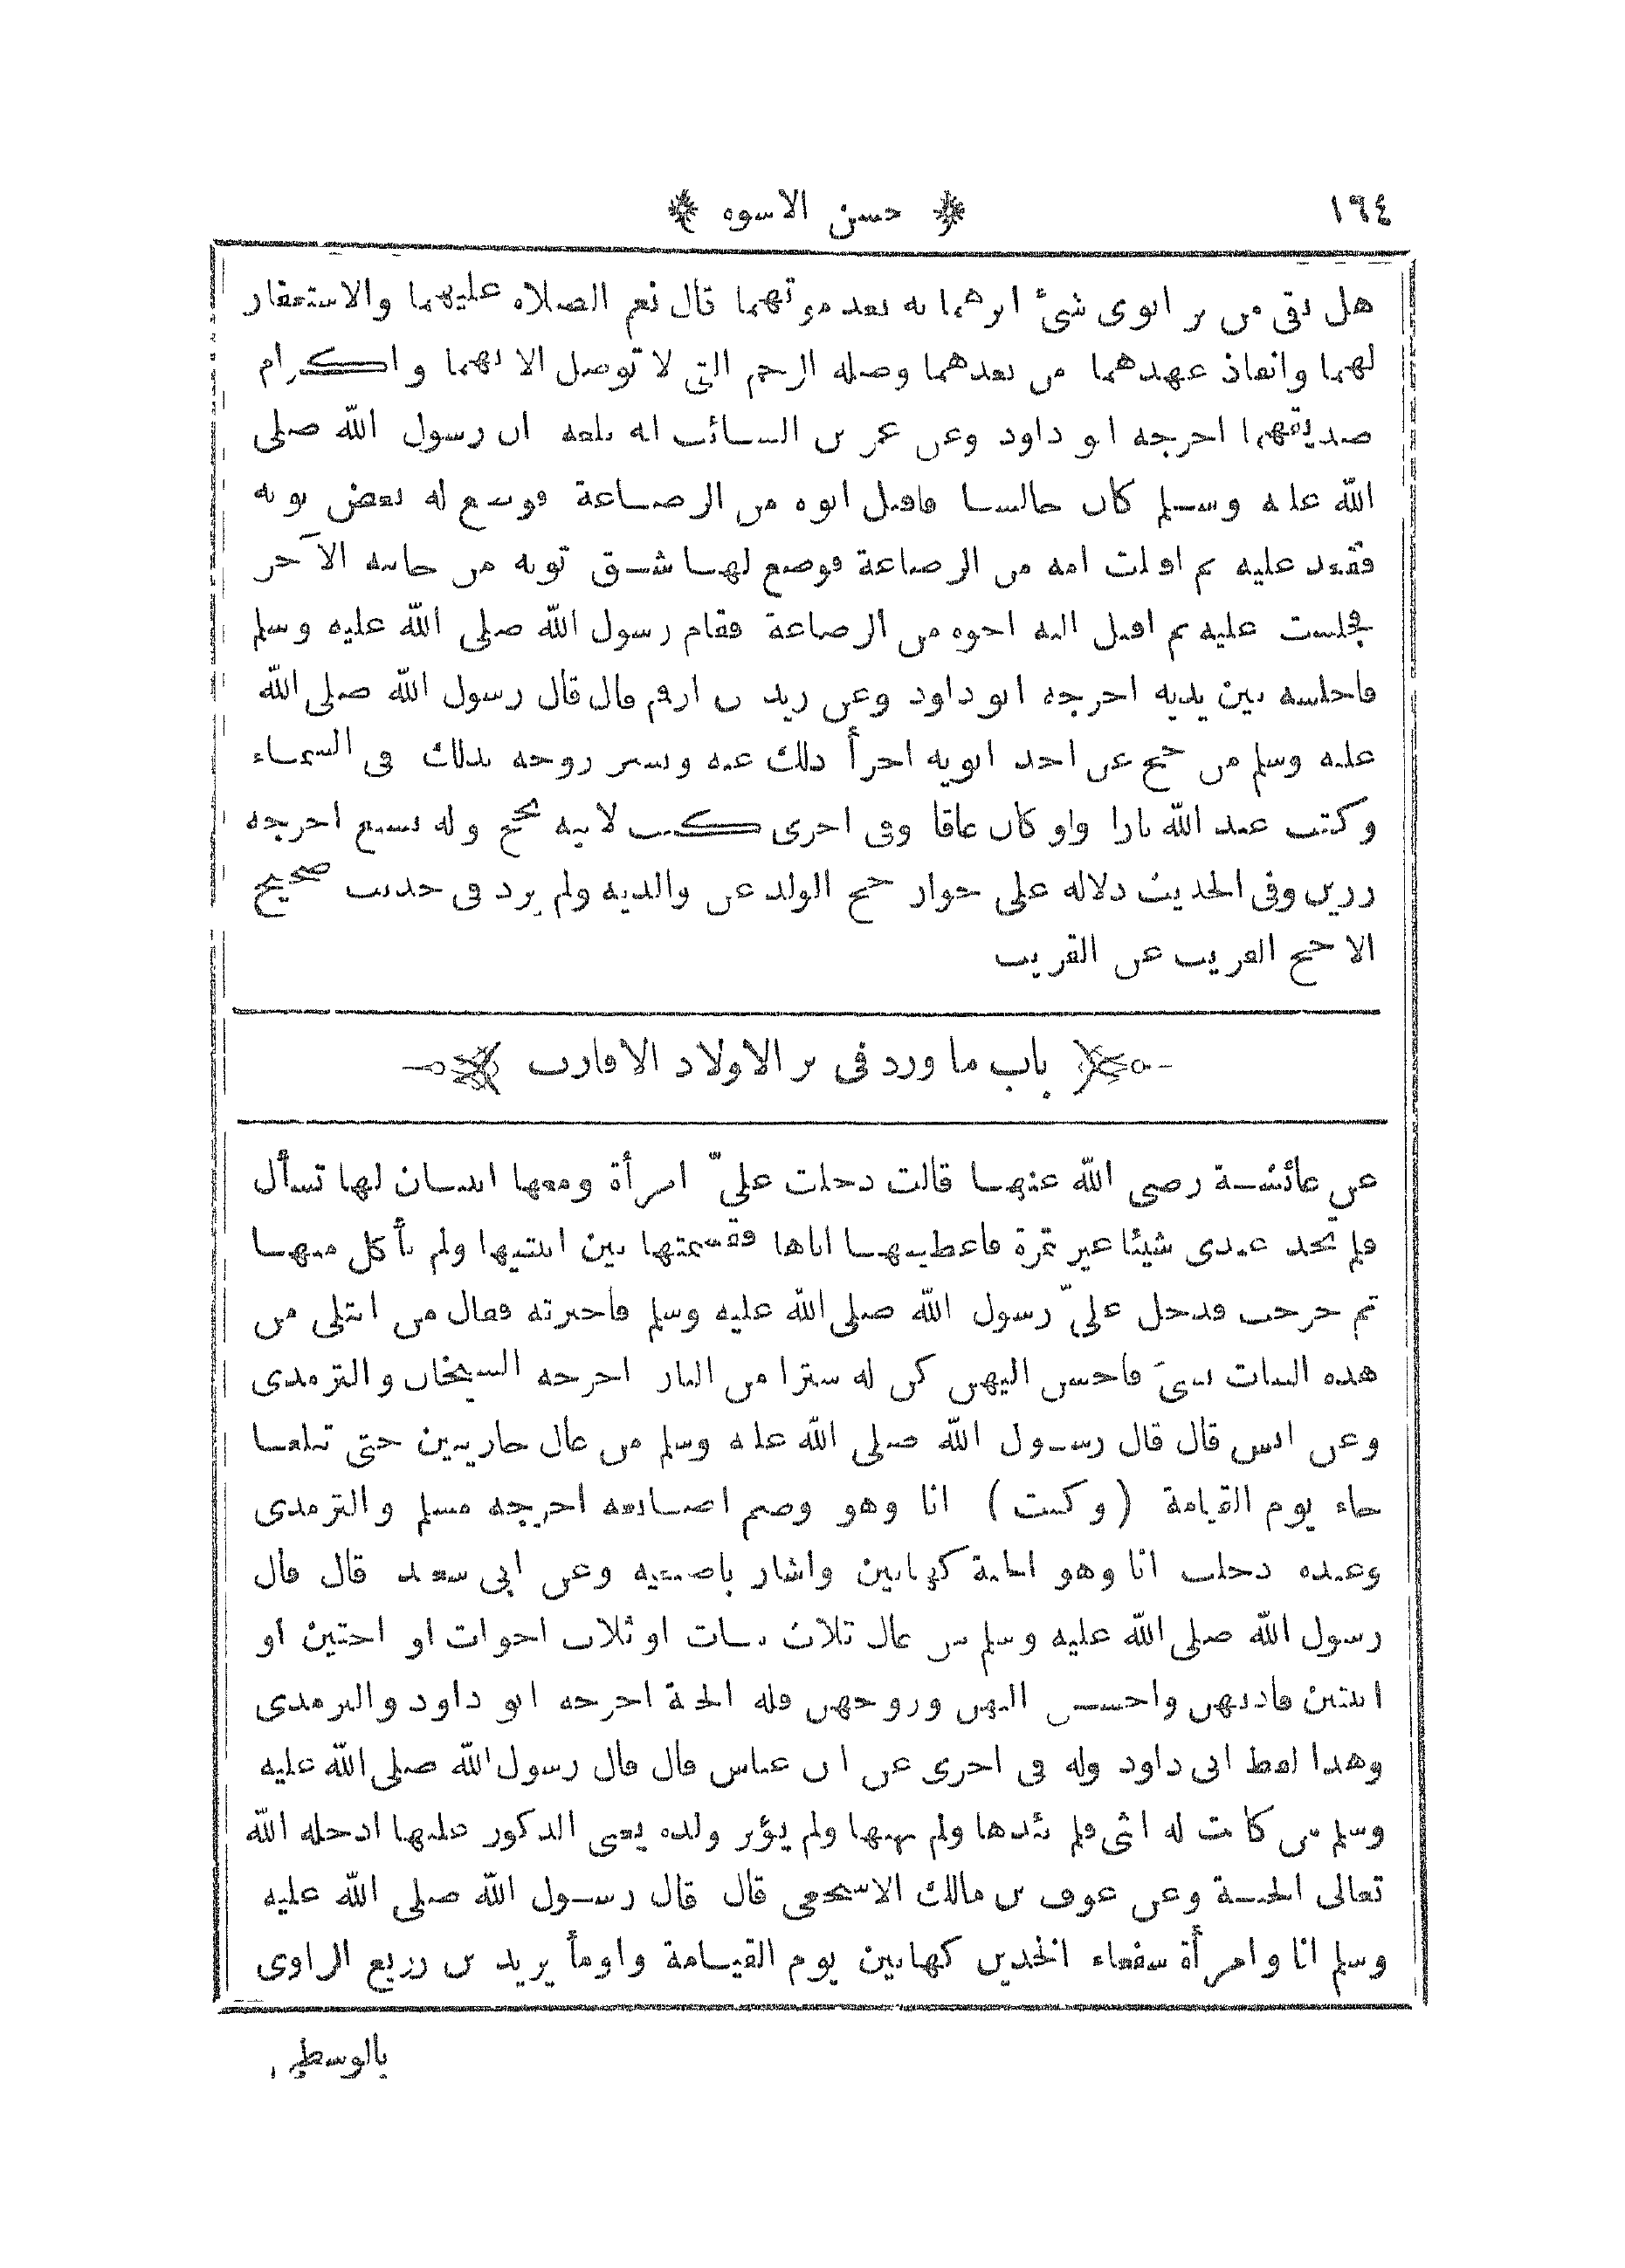 ١٦٤ حسن الاسوه
هل بقى من بر ابوى شئ ابرهما به بعد موتهما قال نعم الصلاه عليهما والاستغفار
لهما وانفاذ عهدهما من بعدهما وصله الرحم التى لا توصل الا بهما واكرام
صديقهما اخرجه ابو داود وعن عمر بن السائب انه بلغه ان رسول الله صلى
الله عليه وسلم كان جالسا فاقبل ابوه من الرضاعة فوضع له بعض ثوبه
فقعد عليه ثم اقبلت امه من الرضاعة فوضع لها شق ثوبه من جانبه الآخر
فجلست عليه ثم اقبل اليه اخوه من الرضاعة فقام رسول الله صلى الله عليه وسلم
فاجلسه بين يديه اخرجه ابو داود وعن زيد بن ارقم قال قال رسول الله صلى الله
عليه وسلم من حج عن احد ابويه اجزأ ذلك عنه وبشر روحه بذلك فى السماء
وكتب عند الله بارا ولو كان عاقا وفى اخرى كتب لابيه بحج وله بسبع اخرجه
رزين وفى الحديث دلاله على جواز حج الولد عن والديه ولم يرد فى حديث صحيح
الا حج القريب عن القريب
باب ما ورد فى بر الاولاد الاقارب
عن عائشة رضى الله عنها قالت دخلت علىّ امرأة ومعها ابنتان لها تسأل
فلم تجد عندى شيئا غير تمرة فاعطيتها اياها فقسمتها بين ابنتيها ولم تأكل منها
ثم خرجت فدخل علىّ رسول الله صلى الله عليه وسلم فاخبرته فقال من ابتلى من
هذه البنات بشئ فاحسن اليهن كن له سترا من النار اخرجه الشيخان والترمذى
وعن انس قال قال رسول الله صلى الله عليه وسلم من عال جاريتين حتى تبلغا
جاء يوم القيامة (وكنت) انا وهو وضم اصابعه اخرجه مسلم والترمذى
وعنده دخلت انا وهو الجنة كهاتين واشار باصبعيه وعن ابى سعيد قال قال
رسول الله صلى الله عليه وسلم من عال ثلاث بنات او ثلاث اخوات او اختين او
ابنتين فادبهن واحسن اليهن وزوجهن فله الجنة اخرجه ابو داود والترمذى
وهذا لفظ ابى داود وله فى اخرى عن ابن عباس قال قال رسول الله صلى الله عليه
وسلم من كانت له انثى فلم يئدها ولم يهنها ولم يؤثر ولده يعنى الذكور عليها ادخله الله
تعالى الجنة وعن عوف بن مالك الاشجعى قال قال رسول الله صلى الله عليه
وسلم انا وامرأة سفعاء الخدين كهاتين يوم القيامة واومأ يزيد بن زريع الراوى
بالوسطى